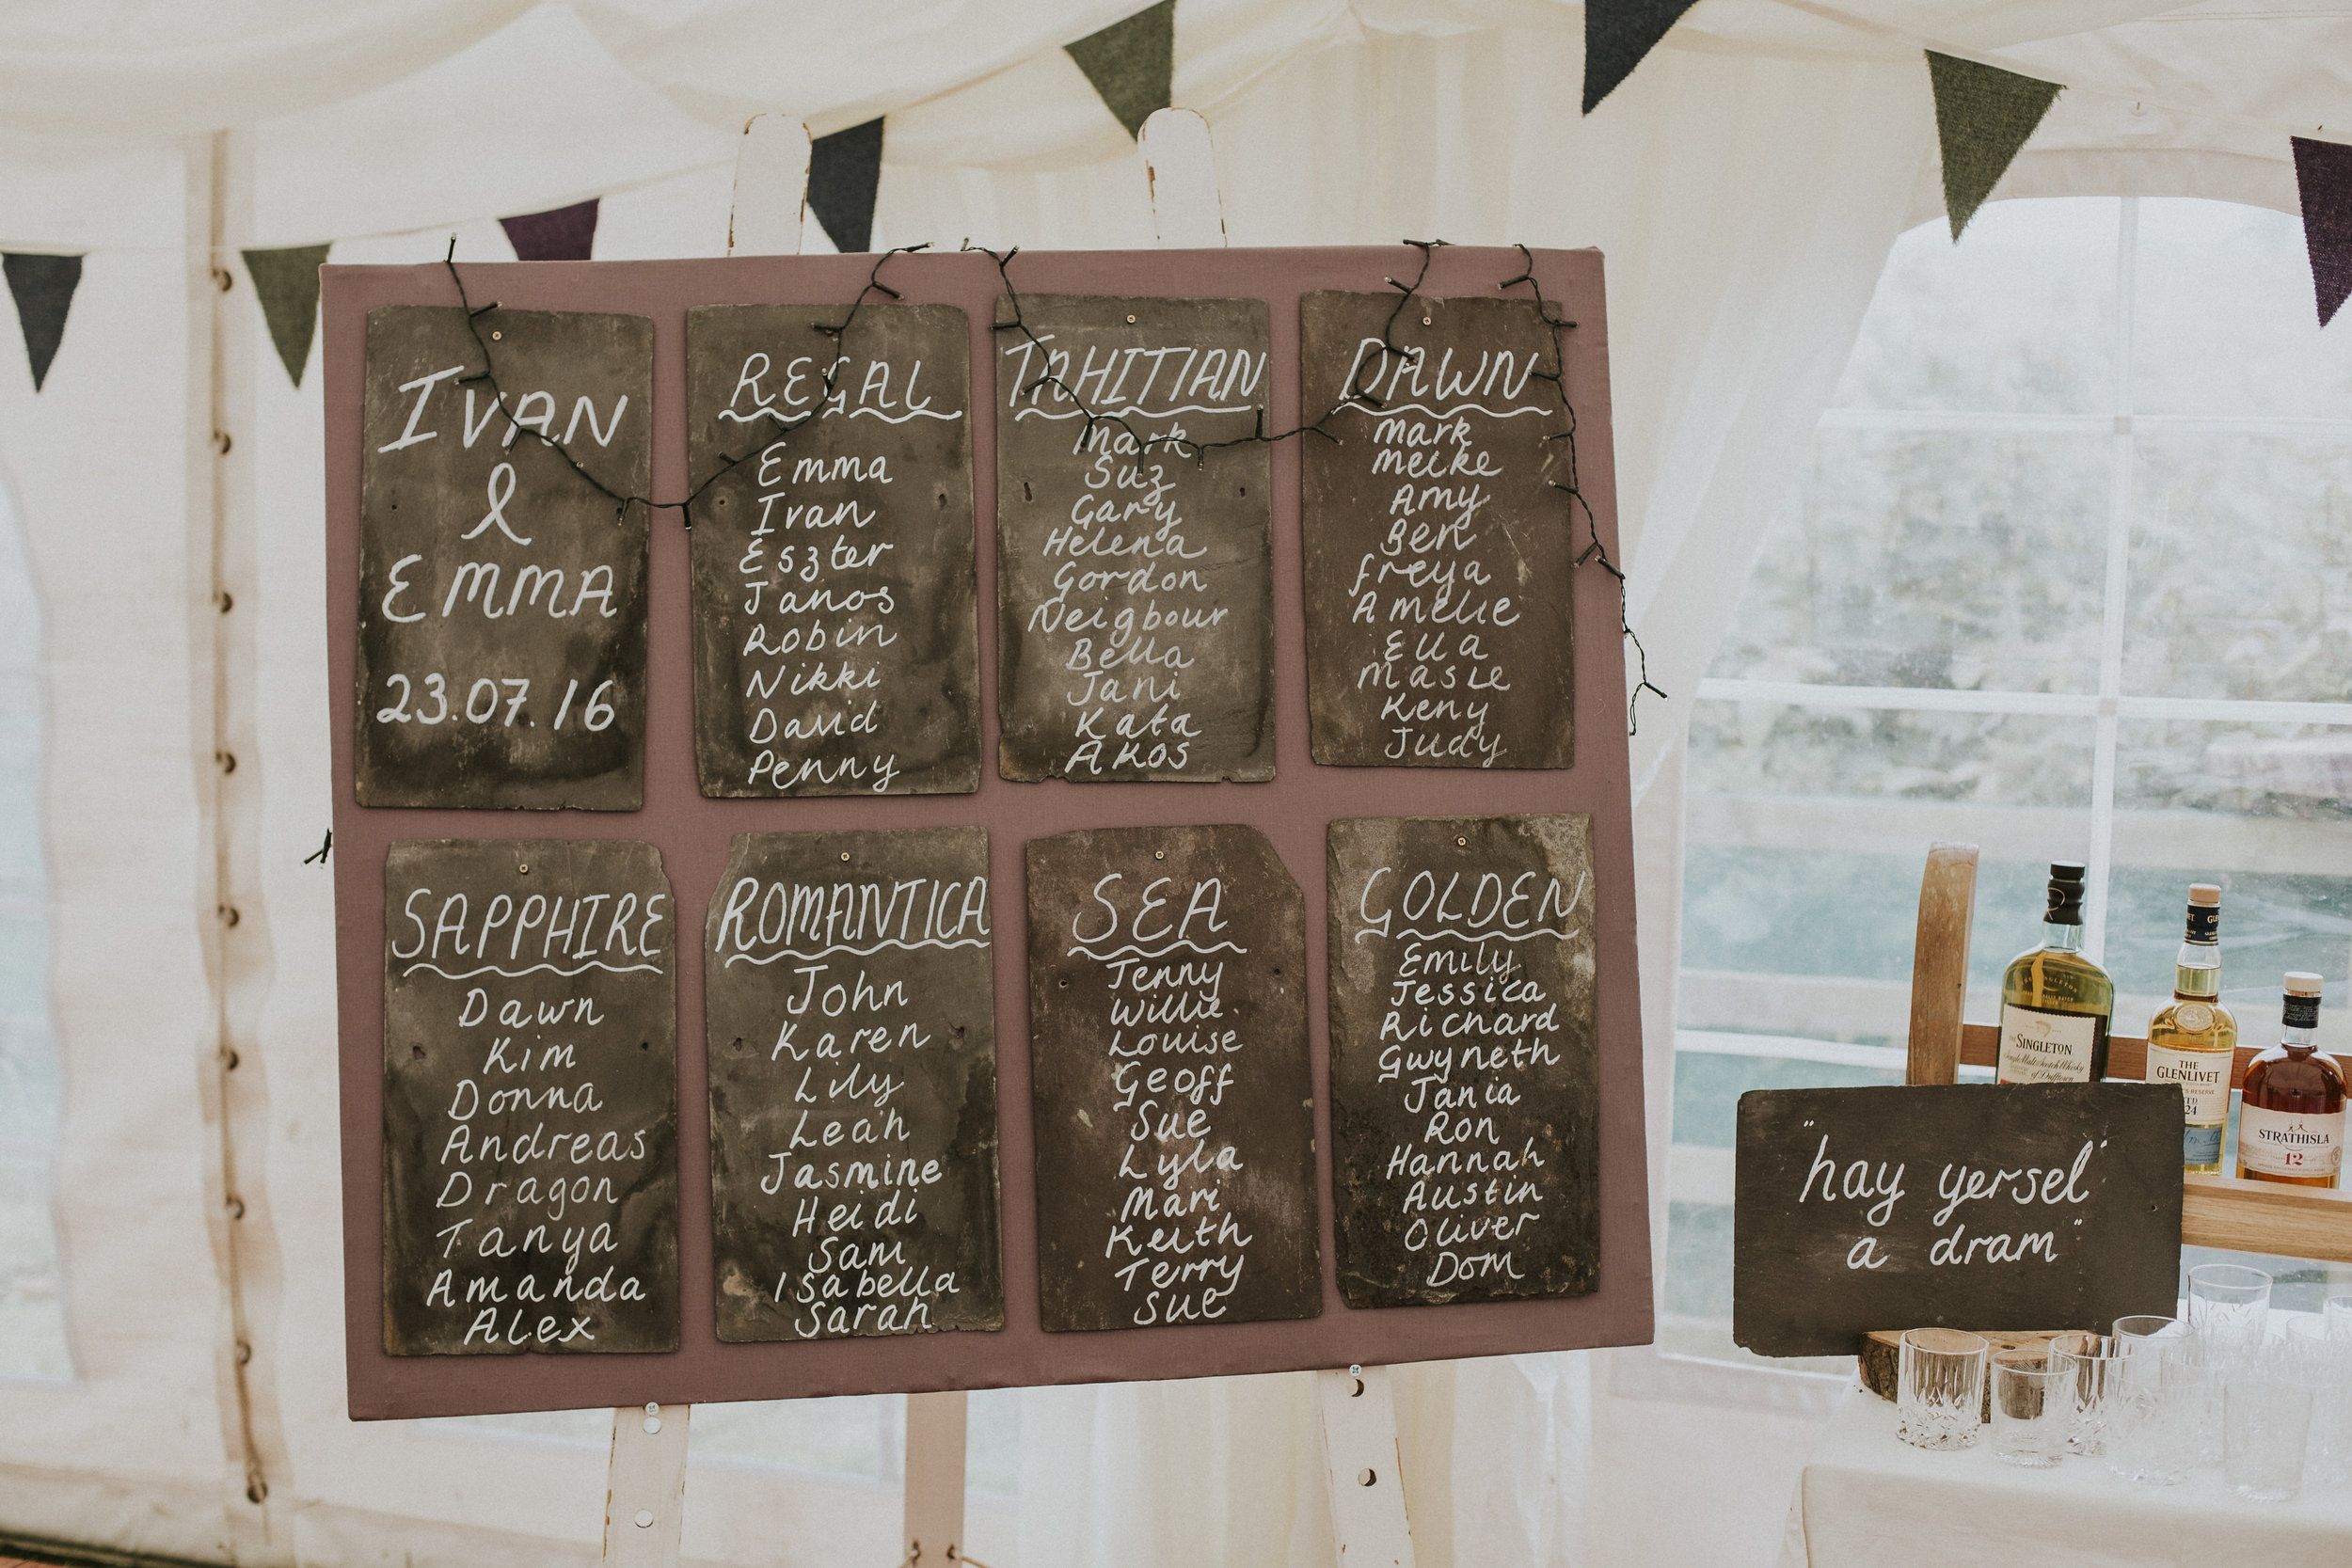 IVAN
&
EMMA
23.07.16
REGAL
Emma
Ivan
Eszter
Janos
Robin
Nikki
David
Penny
TAHITIAN
Mark
Suz
Gary
Helena
Gordon
Neigbour
Bella
Jani
Kata
Akos
DAWN
Mark
Meike
Amy
Ben
freya
Amelie
Ella
Masie
Keny
Judy
SAPPHIRE
Dawn
Kim
Donna
Andreas
Dragon
Tanya
Amanda
Alex
ROMANTICA
John
Karen
Lily
Leah
Jasmine
Heidi
Sam
Isabella
Sarah
SEA
Jenny
Willie
Louise
Geoff
Sue
Lyla
Mari
Keith
Terry
Sue
GOLDEN
Emily
Jessica
Richard
Gwyneth
Jania
Ron
Hannah
Austin
Oliver
Dom
THE SINGLETON
Single Malt Scotch Whisky
of Dufftown
THE
GLENLIVET
STRATHISLA
12
"hay yersel'
a dram"